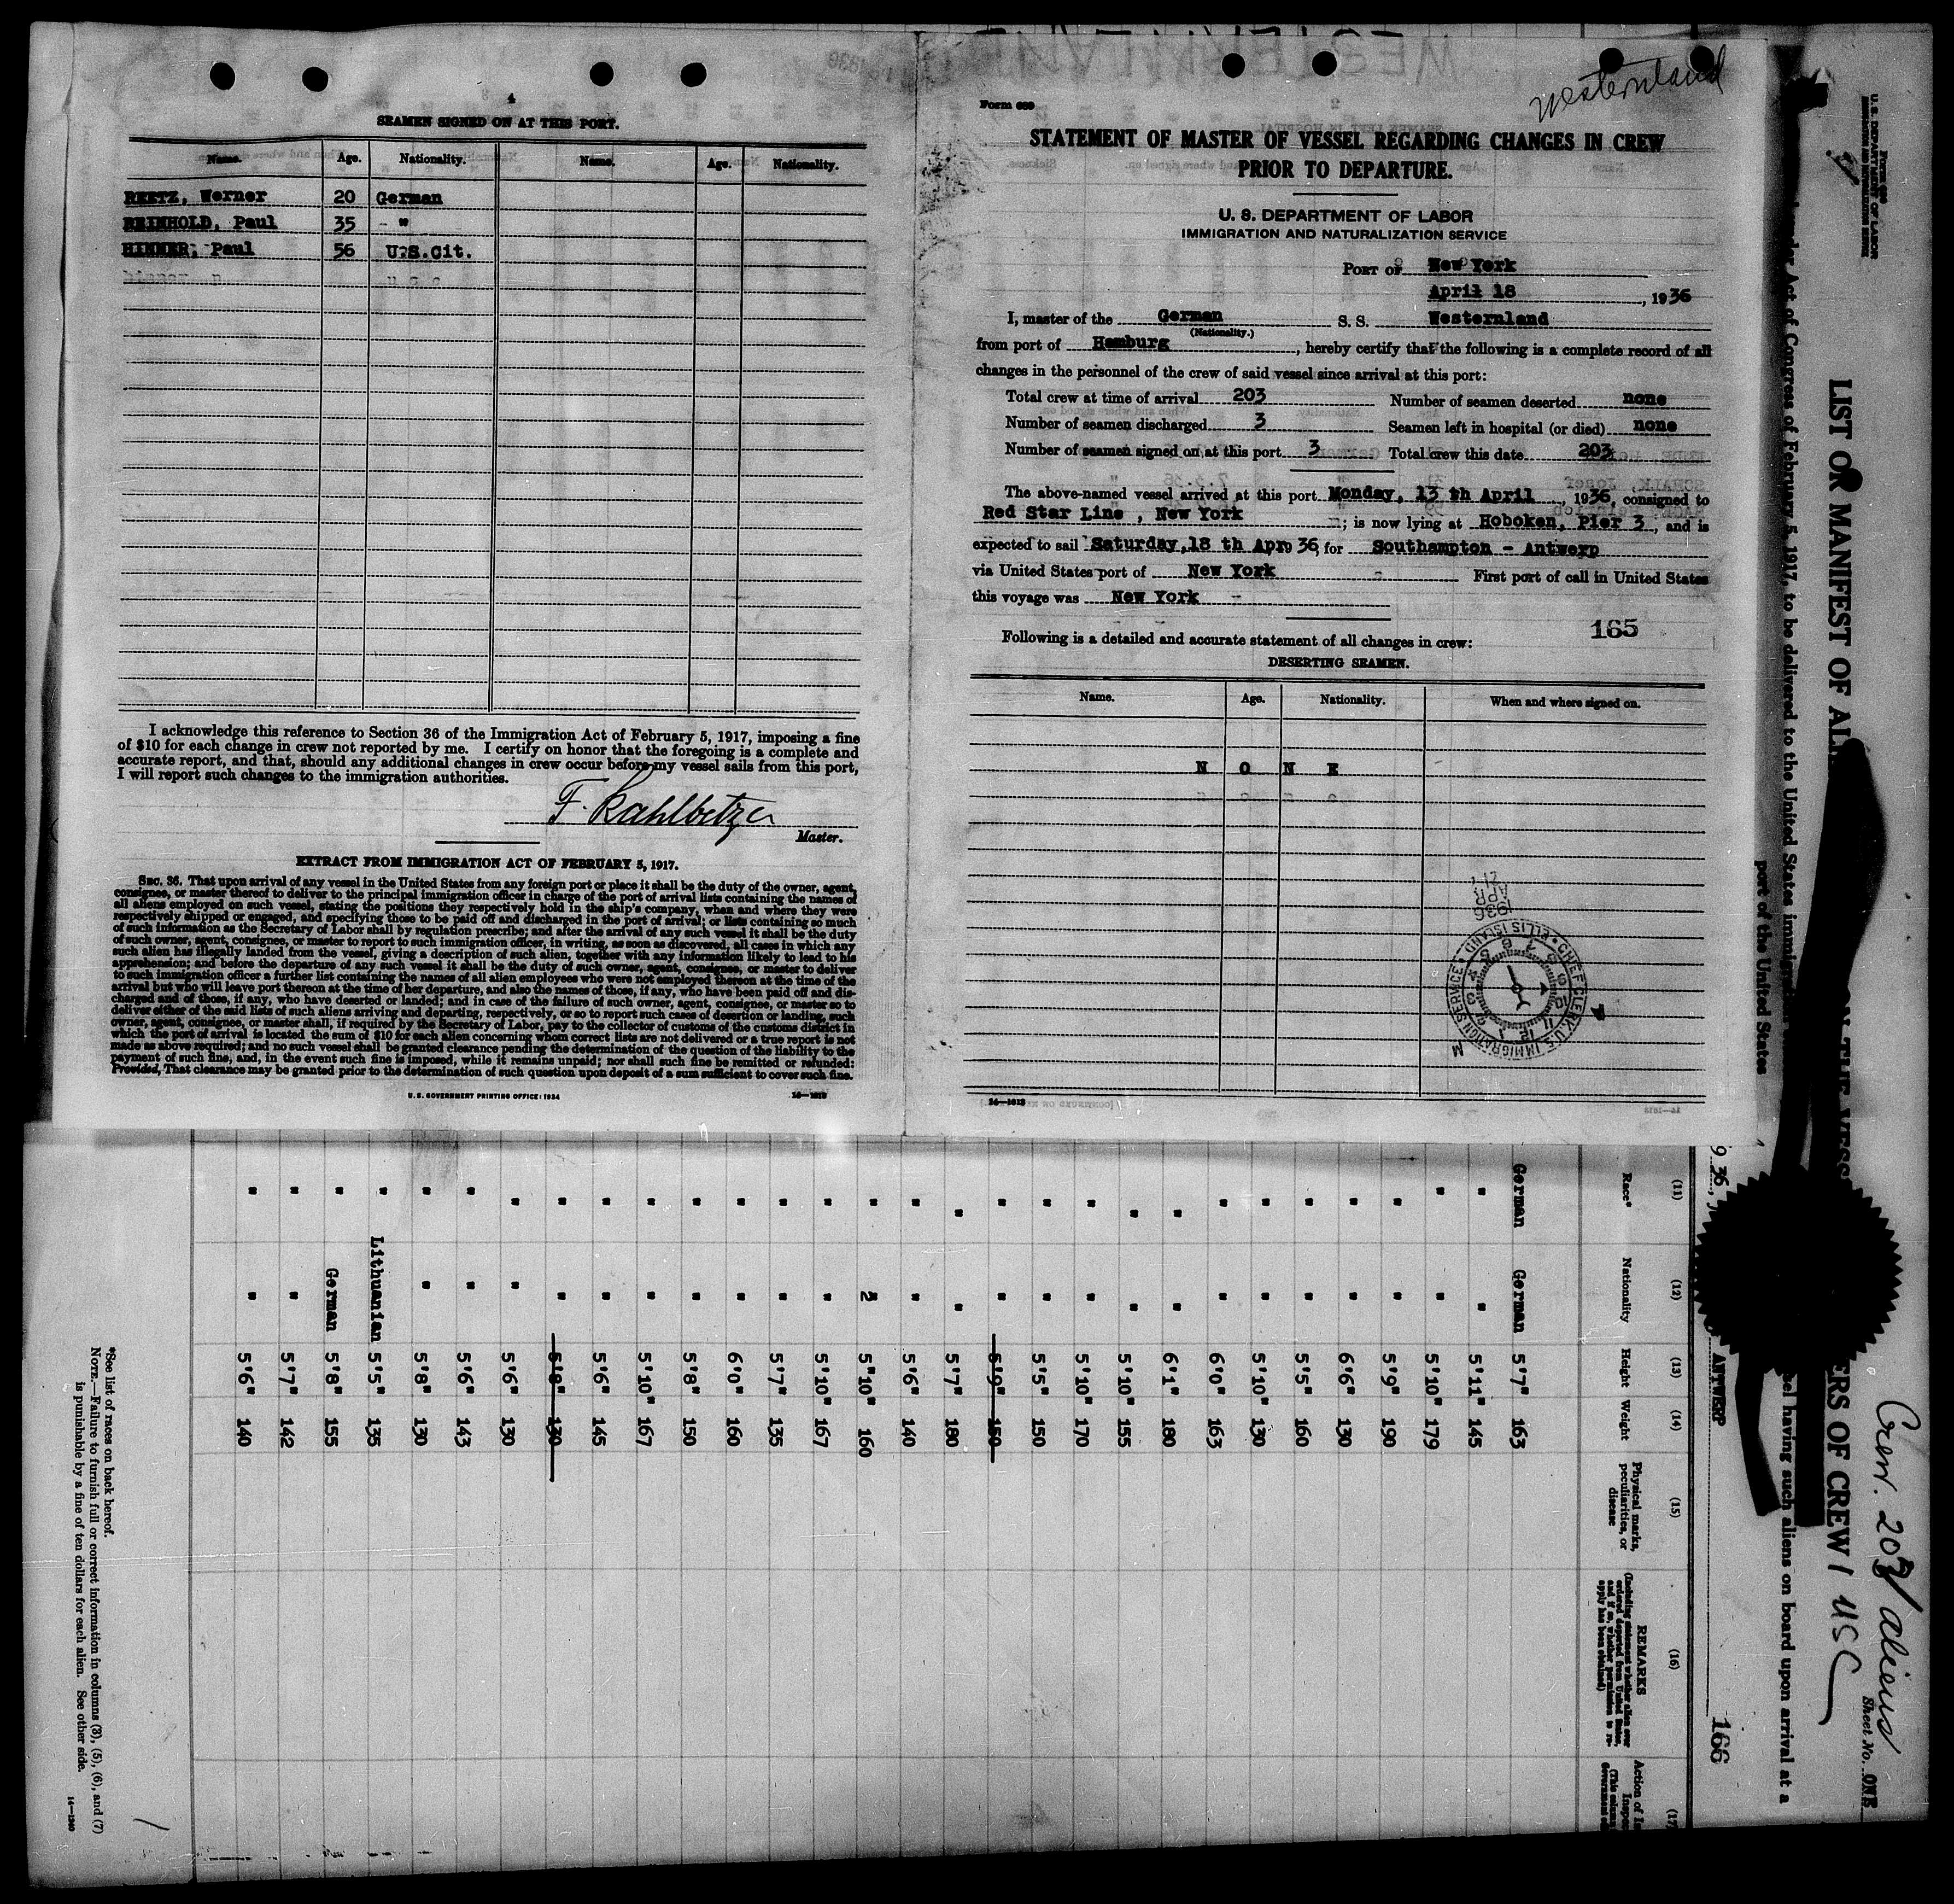 4
SEAMEN SIGNED ON AT THIS PORT.
Name. Age. Nationality. Name. Age. Nationality.
REETZ, Werner 20 German
REINHOLD, Paul 35 - "
HINNER, Paul 56 U.S.Cit.
I acknowledge this reference to Section 36 of the Immigration Act of February 5, 1917, imposing a fine
of $10 for each change in crew not reported by me. I certify on honor that the foregoing is a complete and
accurate report, and that, should any additional changes in crew occur before my vessel sails from this port,
I will report such changes to the immigration authorities.
Master.
EXTRACT FROM IMMIGRATION ACT OF FEBRUARY 5, 1917.
SEC. 36. That upon arrival of any vessel in the United States from any foreign port or place it shall be the duty of the owner, agent,
consignee, or master thereof to deliver to the principal immigration officer in charge of the port of arrival lists containing the names of
all aliens employed on such vessel, stating the positions they respectively hold in the ship's company, when and where they were
respectively shipped or engaged, and specifying those to be paid off and discharged in the port of arrival; or lists containing so much
of such information as the Secretary of Labor shall by regulation prescribe; and after the arrival of any such vessel it shall be the duty
of such owner, agent, consignee, or master to report to such immigration officer, in writing, as soon as discovered, all cases in which any
such alien has illegally landed from the vessel, giving a description of such alien, together with any information likely to lead to his
apprehension; and before the departure of any such vessel it shall be the duty of such owner, agent, consignee, or master to deliver
to such immigration officer a further list containing the names of all alien employees who were not employed thereon at the time of the
arrival but who will leave port thereon at the time of her departure, and also the names of those, if any, who have been paid off and dis-
charged and of those, if any, who have deserted or landed; and in case of the failure of such owner, agent, consignee, or master so to
deliver either of the said lists of such aliens arriving and departing, respectively, or so to report such cases of desertion or landing, such
owner, agent, consignee, or master shall, if required by the Secretary of Labor, pay to the collector of customs of the customs district in
which the port of arrival is located the sum of $10 for each alien concerning whom correct lists are not delivered or a true report is not
made as above required; and no such vessel shall be granted clearance pending the determination of the question of the liability to the
payment of such fine, and, in the event such fine is imposed, while it remains unpaid; nor shall such fine be remitted or refunded:
Provided, That clearance may be granted prior to the determination of such question upon deposit of a sum sufficient to cover such fine.
U. S. GOVERNMENT PRINTING OFFICE: 1934
Westernland
Form 689
STATEMENT OF MASTER OF VESSEL REGARDING CHANGES IN CREW
PRIOR TO DEPARTURE.
U. S. DEPARTMENT OF LABOR
IMMIGRATION AND NATURALIZATION SERVICE
PORT OF New York
April 18, 1936
I, master of the German S. S. Westernland
(Nationality.)
from port of Hamburg, hereby certify that the following is a complete record of all
changes in the personnel of the crew of said vessel since arrival at this port:
Total crew at time of arrival 203 Number of seamen deserted none
Number of seamen discharged 3 Seamen left in hospital (or died) none
Number of seamen signed on at this port 3 Total crew this date 203
The above-named vessel arrived at this port Monday, 13 th April, 1936, consigned to
Red Star Line, New York; is now lying at Hoboken, Pier 3, and is
expected to sail Saturday,18 th Apr 36, for Southampton - Antwerp
via United States port of New York First port of call in United States
this voyage was New York -
165
Following is a detailed and accurate statement of all changes in crew:
DESERTING SEAMEN.
Name. Age. Nationality. When and where signed on.
N O N E
1936
APR
21
CHIEF CLERK, U.S. IMMIGRATION SERVICE, ELLIS ISLAND
M
U. S. DEPARTMENT OF LABOR
LIST OR MANIFEST OF AL
ERS OF CREW 1 USC
Crew. 203 aliens
Sheet No. ONE
Act of Congress of February 5, 1917, to be delivered to the United States immigra
sel having such aliens on board upon arrival at a
port of the United States
9 36,
ANTWERP
166
(11) (12) (13) (14) (15) (16) (17)
Race* Nationality Height Weight Physical marks, peculiarities, or disease REMARKS Action of I
German German 5'7" 163
" " 5'11" 145
" " 5'10" 179
" " 5'9" 190
" " 6'6" 130
" " 5'5" 160
" " 5'10" 130
" " 6'0" 163
" " 6'1" 180
" " 5'10" 155
" " 5'10" 170
" " 5'5" 150
" " 5'9" 150
" " 5'7" 180
" " 5'6" 140
" " 5"10" 160
" " 5'10" 167
" " 5'7" 135
" " 6'0" 160
" " 5'8" 150
" " 5'10" 167
" " 5'6" 145
" " 5'8" 130
" " 5'6" 130
" " 5'6" 143
" " 5'8" 130
" Lithuanian 5'5" 135
" German 5'8" 155
" " 5'7" 142
" " 5'6" 140
*See list of races on back hereof.
NOTE.—Failure to furnish full or correct information in columns (3), (5), (6), and (7)
is punishable by a fine of ten dollars for each alien. See other side.